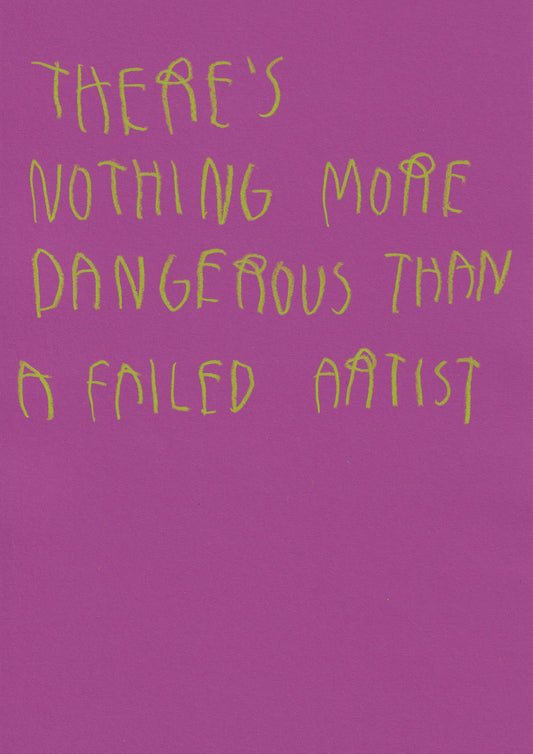 THERE'S
NOTHING MORE
DANGEROUS THAN
A FAILED ARTIST